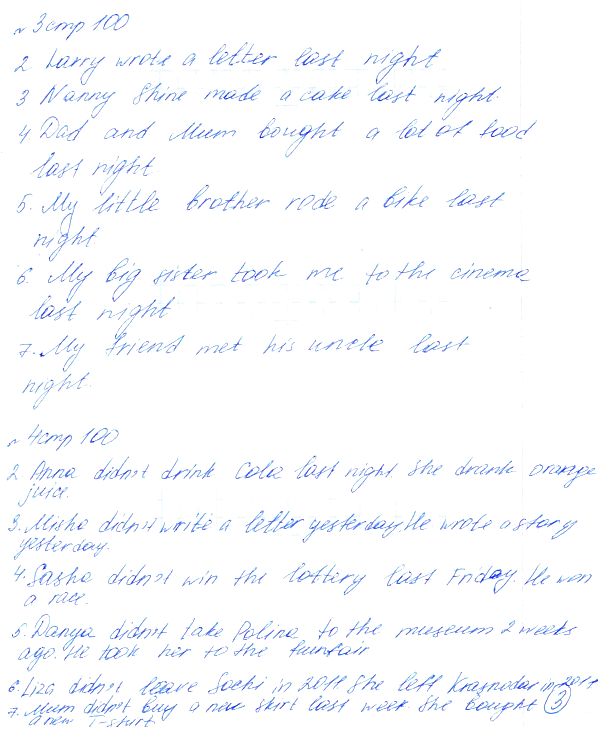 №3 стр 100
2 Larry wrote a letter last night
3 Nanny Shine made a cake last night.
4 Dad and Mum bought a lot of food
last night
5. My little brother rode a bike last
night
6. My big sister took me to the cinema
last night
7. My friend met his uncle last
night.
№4 стр 100
2 Anna didn't drink Cola last night. She drank orange
juice.
3. Misha didn't write a letter yesterday. He wrote a story
yesterday.
4. Sasha didn't win the lottery last Friday. He won
a race.
5. Danya didn't take Polina to the museum 2 weeks
ago. He took her to the funfair
6. Liza didn't leave Sochi in 2011 She left Krasnodar in 2011
7. Mum didn't buy a new skirt last week. She bought 3
a new T-shirt.